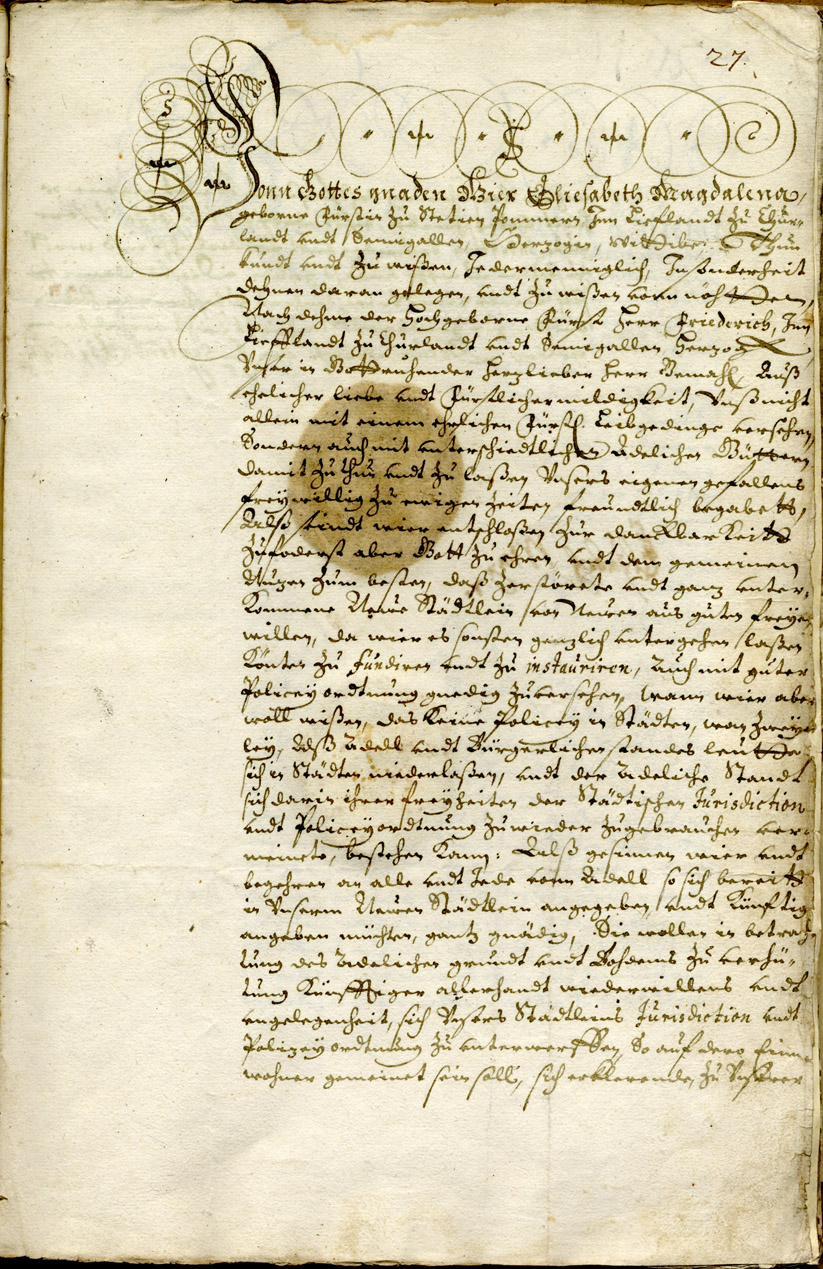 27.
Vonn Gottes gnaden Wier Eliesabeth Magdalena,
geborne Fürstin zu Stetien Pommern, Inn Lieflandt zu Chur-
landt undt Semigallen, Herzogin, Wittibe: Thun
kundt undt zu wißen, Jedermenniglich, Insonderheit
dehnen daran gelegen, undt zu wißen vonnöhtten,
Nach dehme der Hochgeborne Fürst Herr Friederich, Inn
Liefflandt zu Churlandt undt Semigallen Herzog
Unser in Gott Ruhender herzlieber Herr Gemahl, Auß
ehelicher liebe undt Fürstlicher mildigkeit, Unß nicht
allein mit einem ehrlichen Fürstl. Leibgedinge versehen,
Sondern auch mit unterschiedtlichen Adelichen Güttern
damit zu thun undt zu laßen Unsers eigenen gefallens
freywillig zu ewigen zeiten freundtlich begabett,
Alß sindt wier entschloßen zur danckbarkeitt
zuforderst aber Gott zu ehren, undt dem gemeinen
Nuzen zum besten, daß zerstörete undt ganz unter-
kommene Neue Städtlein von Neuen aus guten freyen
willen, da wier es sonsten genzlich untergehen laßen
könten zu fundiren undt zu instauriren, Auch mit guter
Policey ordtnung gnedig zuversehen, Wann wier aber
woll wißen, das keine Policey in Städten, wan zweyer
ley, Alß Adell undt Bürgerlichen standes leutte
sich in Städten niederlaßen, undt der Adeliche Standt
sich darin ihrer freyheiten der Städtischen Jurisdiction
undt Policeyordtnung zuwieder zugebrauchen ver-
meinete, bestehen kann: Alß gesinnen wier undt
begehren an alle undt Jede vonn Adell so sich bereitts
in Unserm Neuen Städtlein angegeben, undt künftig
angeben müchten, gantz gnädig, Sie wollen in betrach-
tung des Adelichen grundt undt Bohdens zu verhü-
tung künfftiger allerhandt wiederwillens undt
ungelegenheit, sich Unsers Städtleins Jurisdiction undt
Policeyordtnung zu unterwerffen, So auf dero Einn-
wohner gemeinet sein soll, sich erklerende, zu Unserer